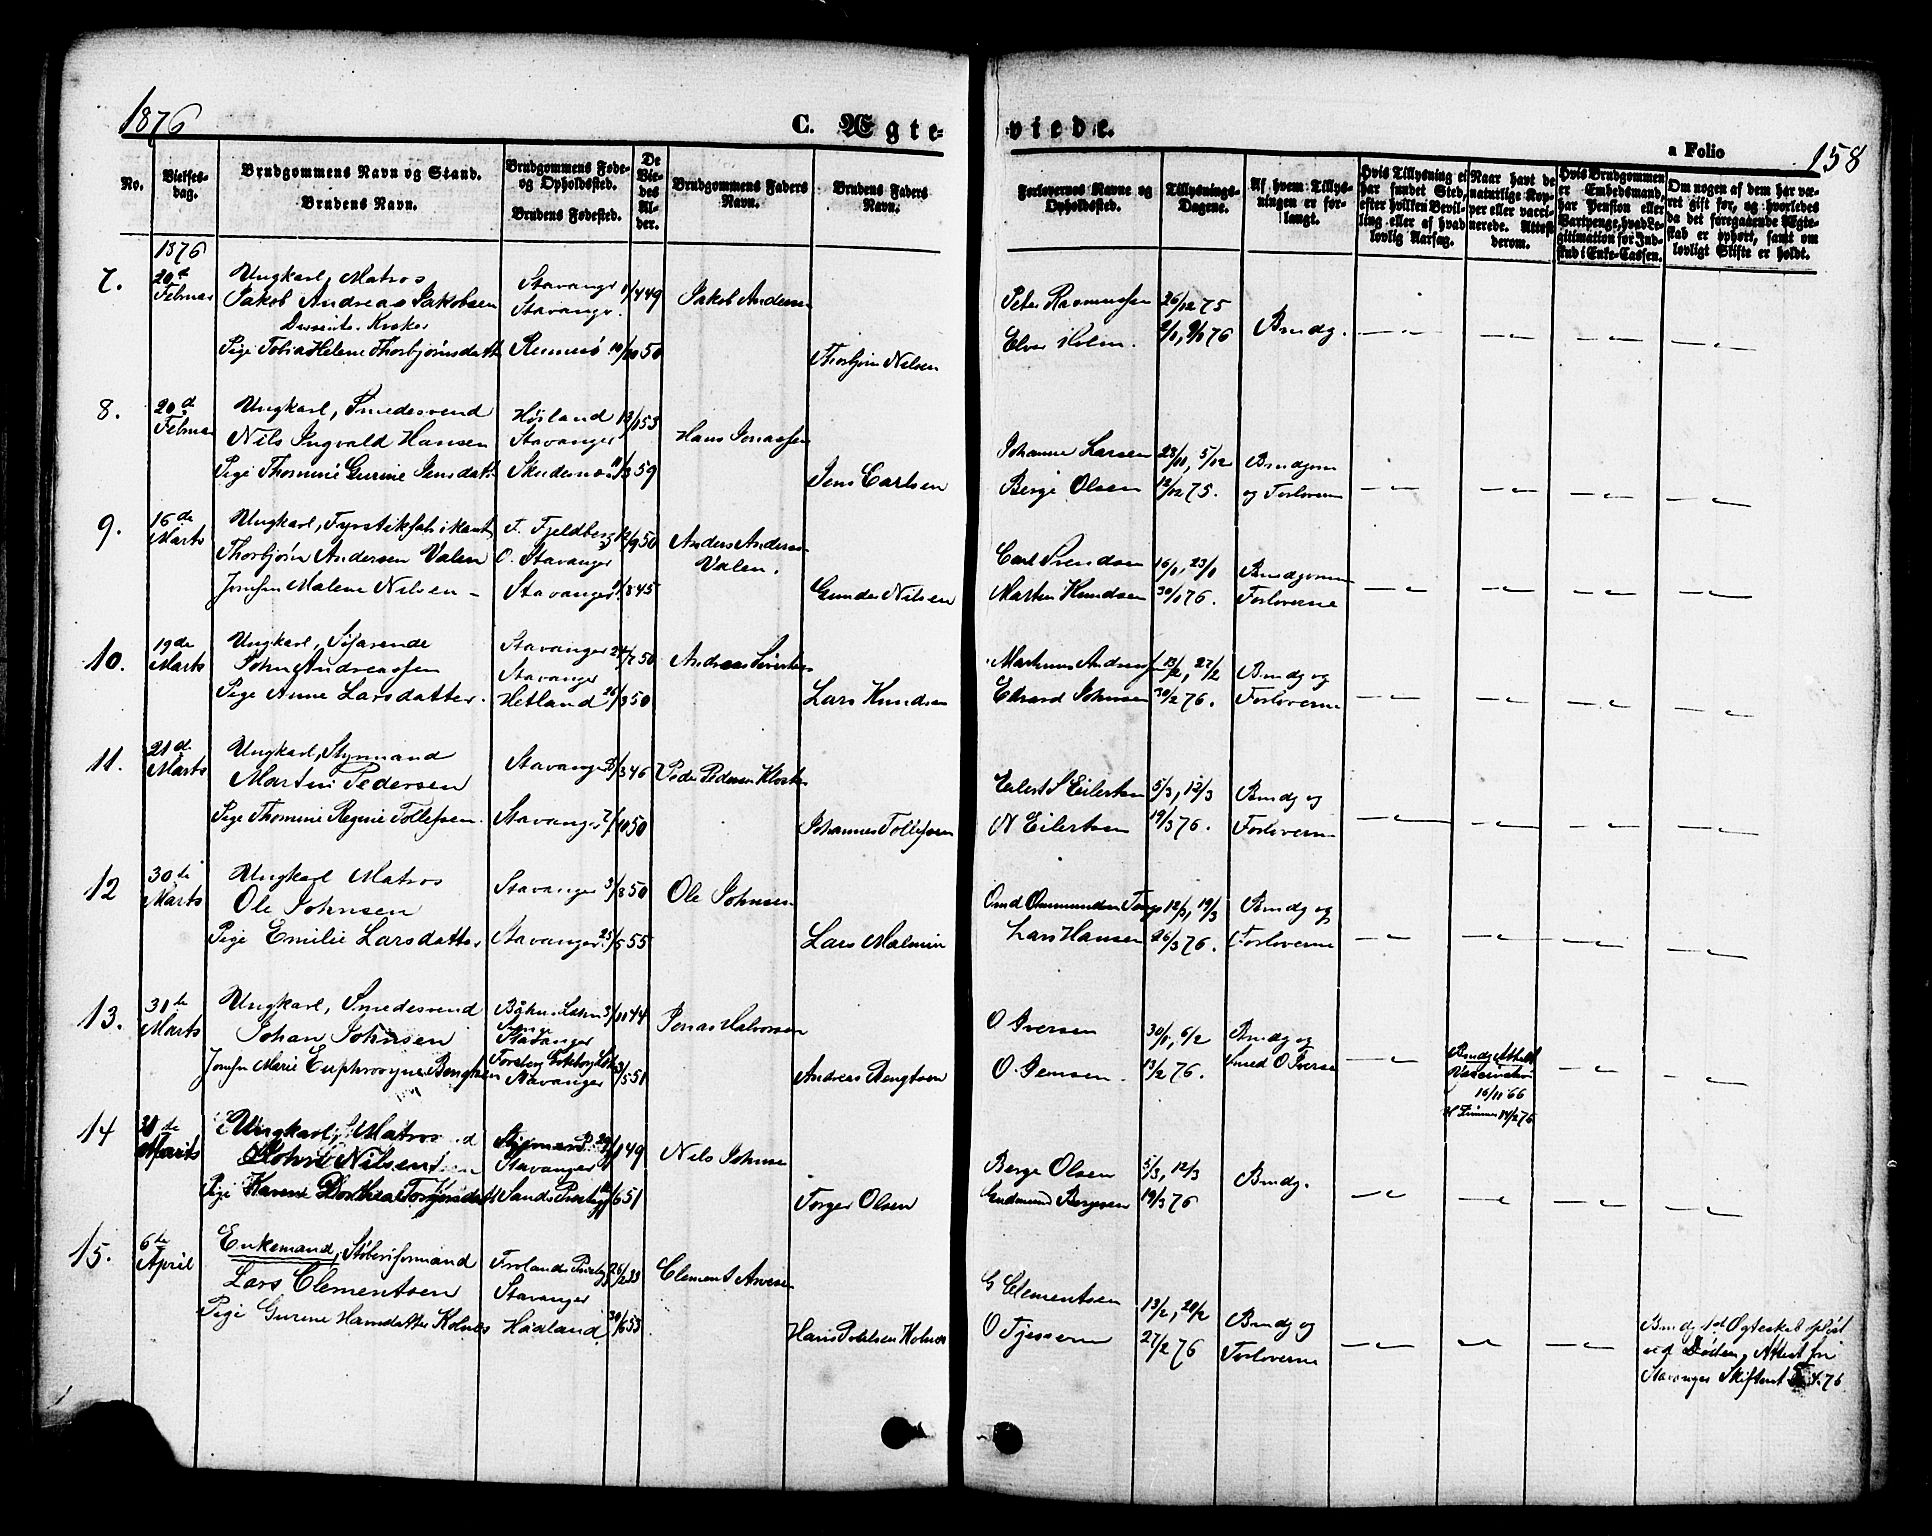 1876
C. Ægteviede.
a Folio 158
No.
Vielses-
dag.
Brudgommens Navn og Stand.
Brudens Navn.
Brudgommens Føde-
og Opholdssted.
Brudens Fødested.
De
Vie-
des
Al-
der.
Brudgommens Faders
Navn.
Brudens Faders
Navn.
Forlovernes Navne og
Opholdssted.
Tillysnings-
Dagene.
Af hvem Tillys-
ningen er for-
langt.
Hvis Tillysning ei
har fundet Sted,
efter hvilken Bevil-
ling eller af hvad
lovlig Aarsag.
Naar havt de
naturlige Kop-
per eller vacci-
nerede. Attest
derom.
Hvis Brudgommen
er Embedsmand,
har Pension eller
Vartpenge, hvad Le-
gitimation for Ind-
skud i Enke-Cassen.
Om nogen af dem har væ-
ret gift før, og hvorledes
da det foregaaende Ægte-
skab er ophørt, samt om
lovligt Skifte er holdt.
1876
7. 20de Februar
Ungkarl, Matros
Jakob Andreas Jakobsen
Pige Tobia Helene Thorbjørnsdatt
Stavanger
Stavanger
Rennesø
1/4 49
10/10 50
Jakob Andersen
Thorbjørn Nilsen
Peter Rasmussen
Elver Holm.
26/12 75
2/1, 9/1 76
Brudg.
8. 20de Februar
Ungkarl, Smedesvend
Nils Ingvald Hansen
Pige Thomine Gurine Jensdatt.
Høiland
Stavanger
Skudesnæs
13/1 53
11/3 59
Hans Jonassen
Jens Carlsen
Johannes Larsen
Berge Olsen
28/11, 5/12
12/12 75.
Brudgom
og Forlovern
9. 16de Marts
Ungkarl, Fyrstikfabrikant
Thorbjørn Andersen Valen
Jomfru Malene Nilsen
F. Fjeldberg
O. Stavanger
Stavanger
12/9 50
11/8 45
Anders Anderss.
Valen.
Gunder Nilsen
Carl Svendsen
Martin Knudsen
16/1, 23/1
30/1 76.
Brudgommen
Forloverne
10. 19de Marts
Ungkarl, Søfarende
John Andreassen
Pige Anne Larsdatter.
Stavanger
Stavanger
Hetland
24/7 50
26/3 50
Andreas Sivertsen
Lars Knudsen
Martinus Andreassen
Edvard Johnsen
13/2, 27/2
30/2 76.
Brudg og
Forloverne
11. 21de Marts
Ungkarl, Styrmand
Martin Pedersen
Pige Thomine Regine Tollefsen.
Stavanger
Stavanger
/3 46
7/10 50
Peder Pedersen Kloster
Johannes Tollefsen
Eilert S Eilertsen
N Eilertsen
5/3, 12/3
19/3 76.
Brudg og
Forloverne
12 30te Marts
Ungkarl Matros
Ole Johnsen
Pige Emilie Larsdatter
Stavanger
Stavanger
3/8 50
25/5 55
Ole Johnsen
Lars Malmin
Omund Ommundsen
Lars Hansen
12/3, 19/3
26/3 76.
Brudg og
Forloverne
13. 31te Marts
Ungkarl, Smedesvend
Johan Johnsen
Jomfru Marie Euphrosyne Bengtsen
Stavanger
Stavanger
3/11 44
31/5 51
Jonas Halvorsen
Andreas Bengtsen
O Iversen
O. Jensen.
30/1, 6/2
13/2 76.
Brudg og
Smed O Iversen
Brudg Attest
Vaccination
16/11 66
14/2 76
14 31te Marts
Ungkarl, Matros
John Nilsen
Pige Karen Dorthea Torgersdatt
Stavanger
Sands Prestegj
/1 49
/6 51
Nils Johnse
Torger Olsen
Berge Olsen
Gudmund Bergesen
5/3, 12/3
19/3 76
Brudg.
15. 6te April
Enkemand, Støberiformand
Lars Clementsen
Pige Gurine Hansdatter Kolnes
Frolands Prestegj
Stavanger
Haaland
26/2 33
30/6 53
Clement Aresen
Hans Kolnes
G Clementsen
O Tjessem
13/2, 20/2
27/2 76
Brudg og
Forloverne
Brudg 1st Ægteskab opløst
ved Døden, Attest fra
Stavanger Skifteret 76